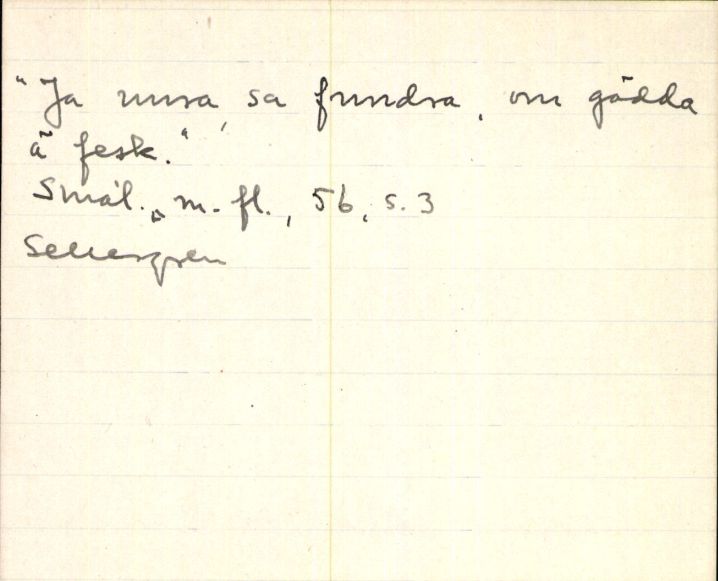 "Ja unra, sa fundra, om gädda
ä fesk."
Smål. m. fl., 56, s. 3
Sellergren